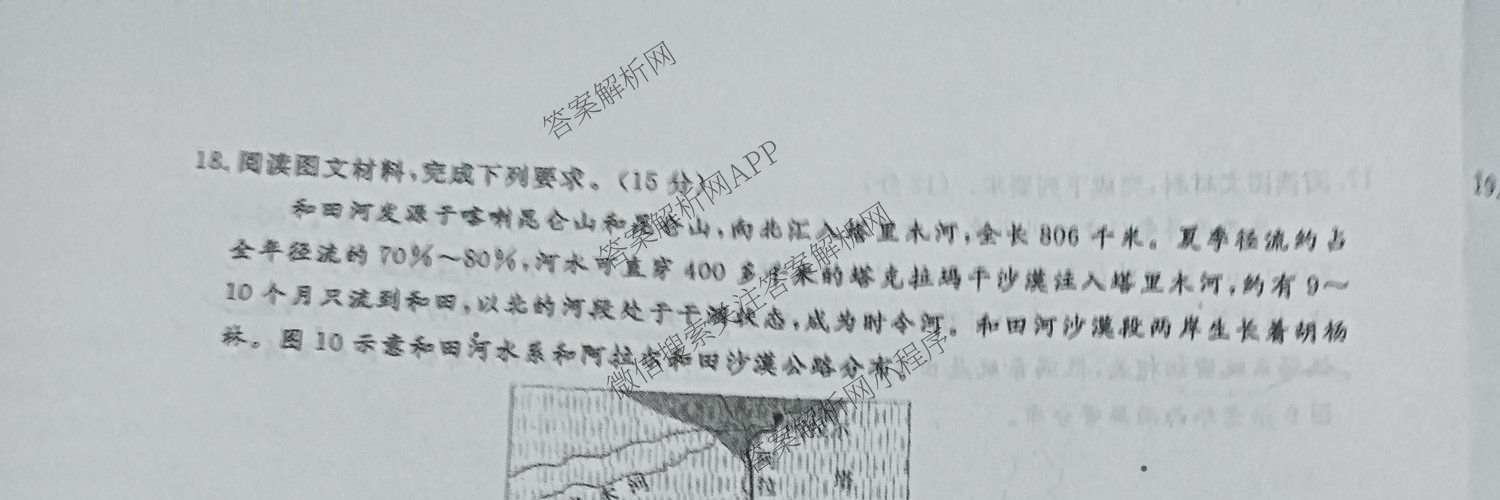 18. 阅读图文材料,完成下列要求。(15 分)
和田河发源于喀喇昆仑山和昆仑山,向北汇入塔里木河,全长 806 千米。夏季径流约占
全年径流的 70%~80%,河水可直穿 400 多千米的塔克拉玛干沙漠注入塔里木河,约有 9~
10 个月只流到和田,以北的河段处于干涸状态,成为时令河。和田河沙漠段两岸生长着胡杨
林。图 10 示意和田河水系和阿拉尔和田沙漠公路分布。
木河
塔
答案解析网
答案解析网APP
微信搜索关注答案解析网
答案解析网小程序
19.